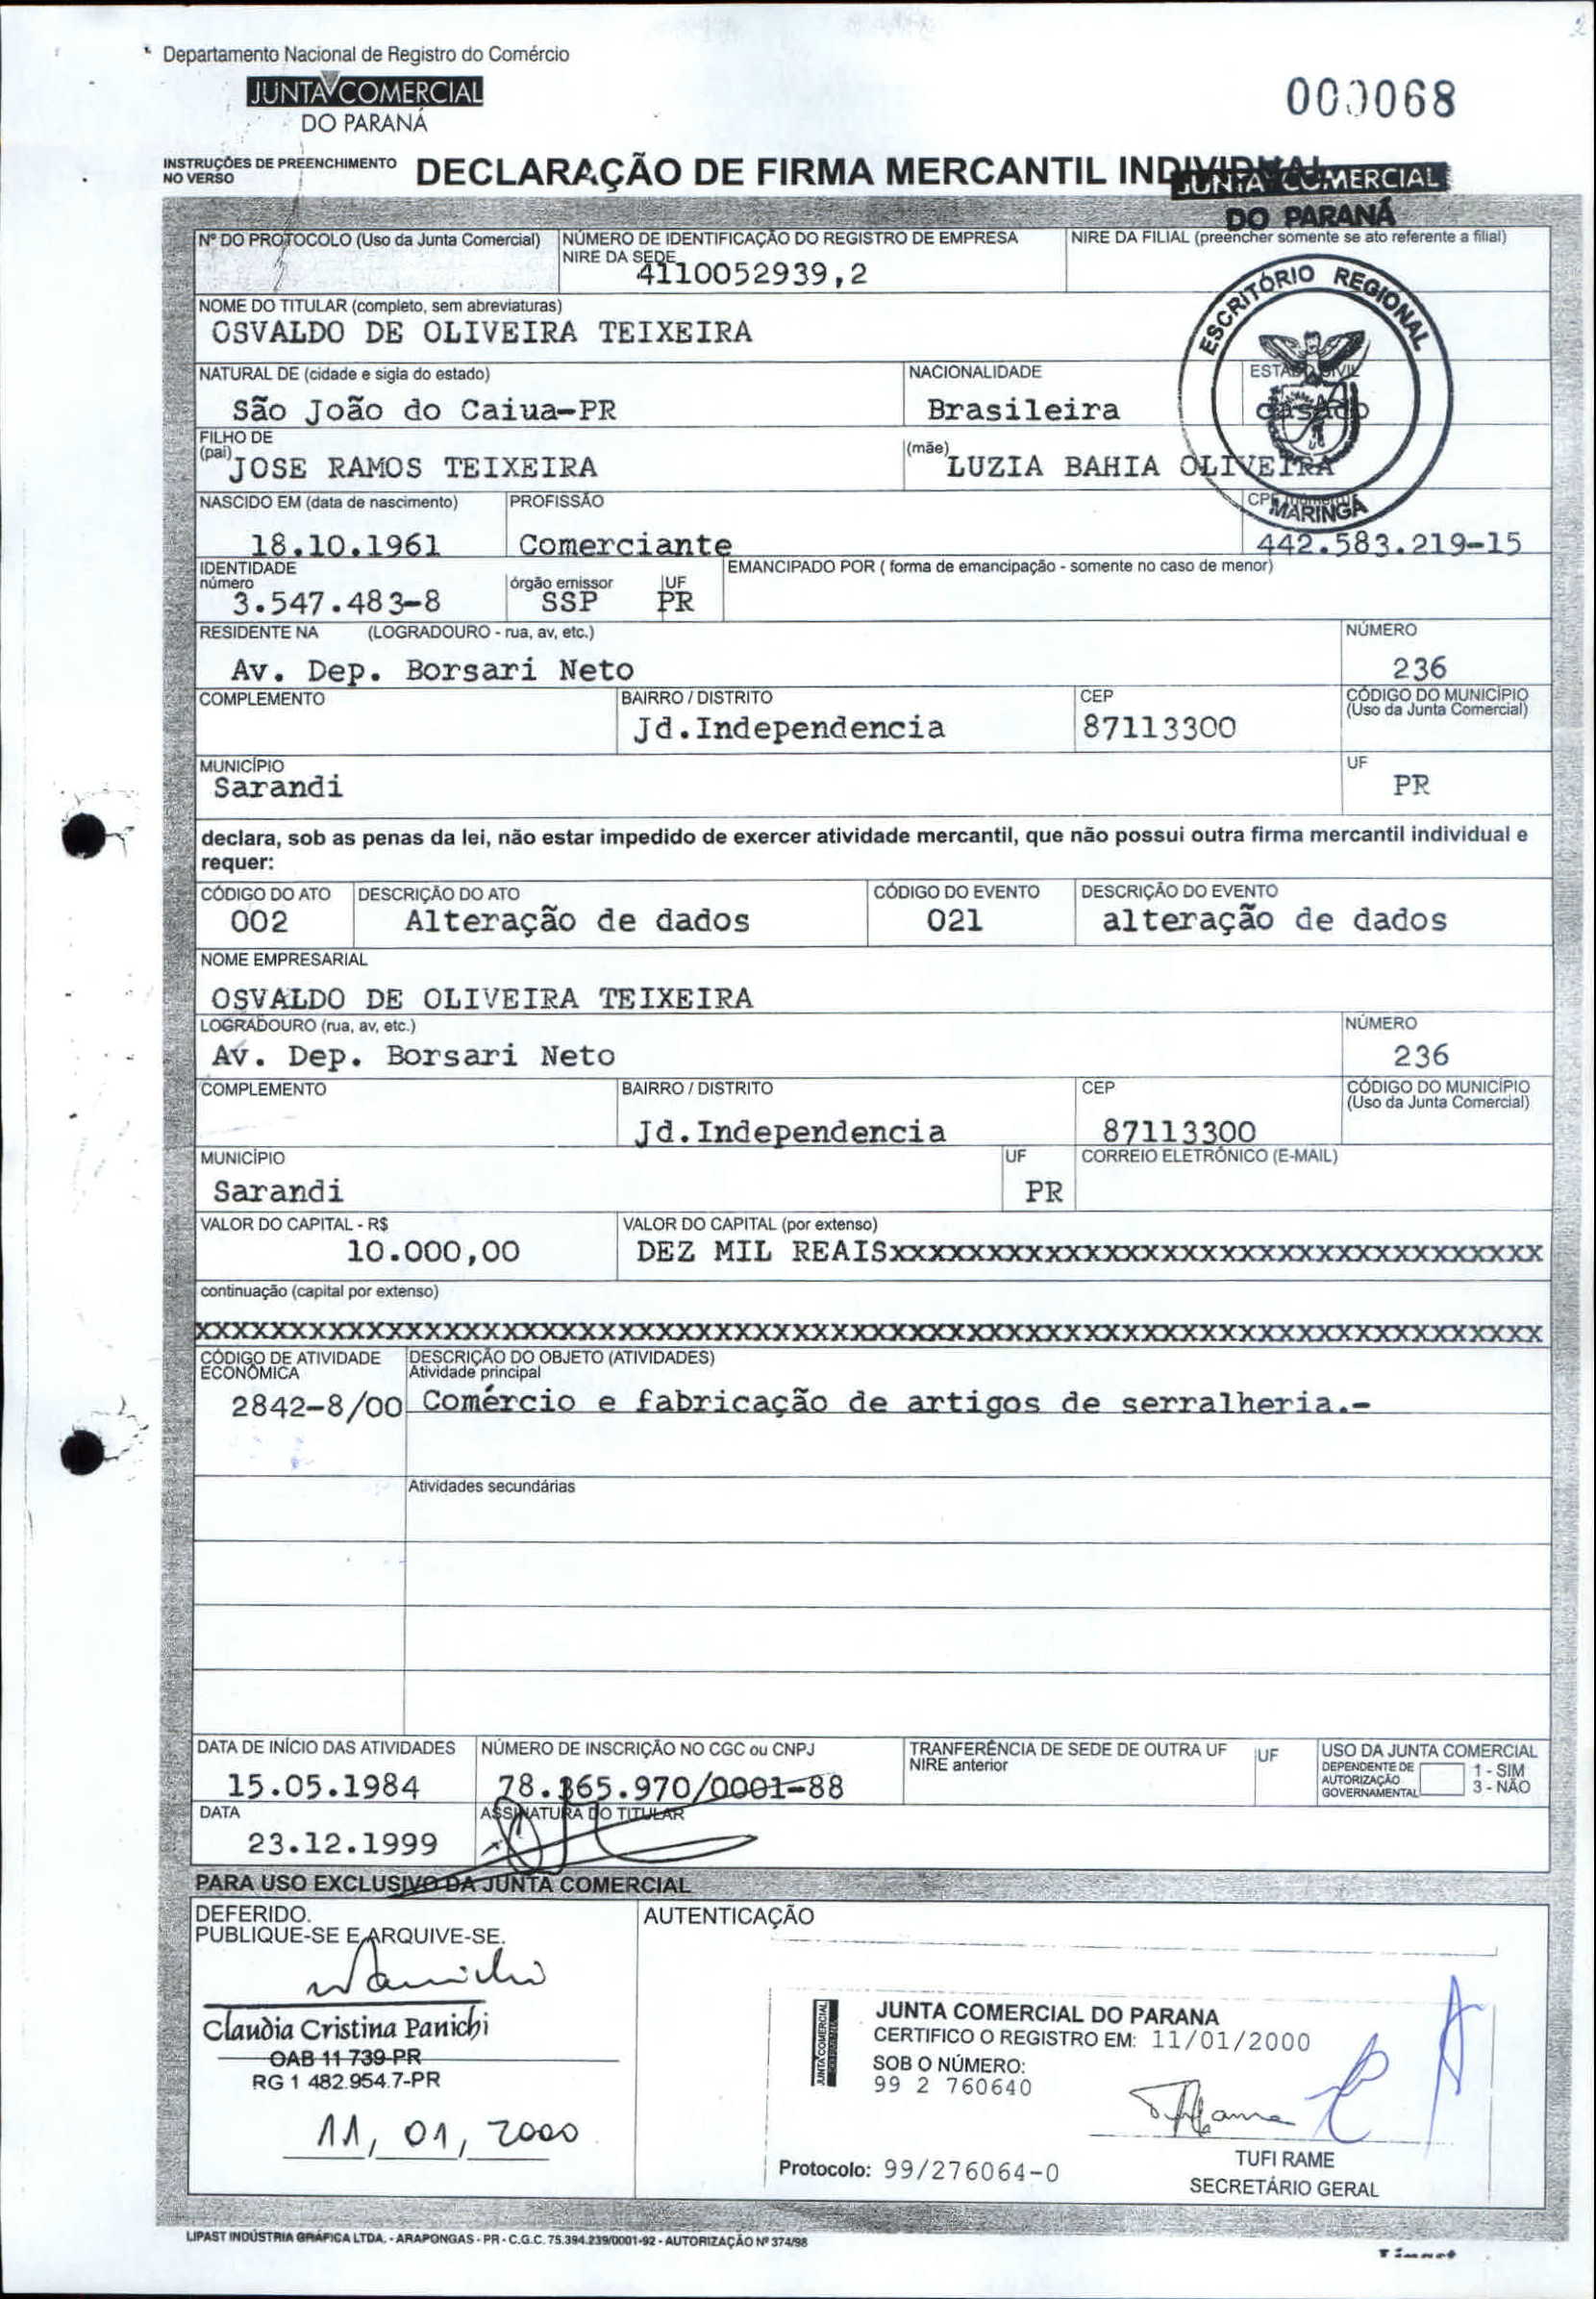 Departamento Nacional de Registro do Comércio
JUNTA COMERCIAL
DO PARANÁ
000068
INSTRUÇÕES DE PREENCHIMENTO
NO VERSO
DECLARAÇÃO DE FIRMA MERCANTIL INDIVIDUAL
JUNTA COMERCIAL
DO PARANÁ
Nº DO PROTOCOLO (Uso da Junta Comercial)
NÚMERO DE IDENTIFICAÇÃO DO REGISTRO DE EMPRESA
NIRE DA SEDE
4110052939,2
NIRE DA FILIAL (preencher somente se ato referente a filial)
ESCRITÓRIO REGIONAL
MARINGÁ
NOME DO TITULAR (completo, sem abreviaturas)
OSVALDO DE OLIVEIRA TEIXEIRA
NATURAL DE (cidade e sigla do estado)
São João do Caiua-PR
NACIONALIDADE
Brasileira
ESTADO CIVIL
casado
FILHO DE
(pai) JOSE RAMOS TEIXEIRA
(mãe) LUZIA BAHIA OLIVEIRA
NASCIDO EM (data de nascimento)
18.10.1961
PROFISSÃO
Comerciante
442.583.219-15
IDENTIDADE
número
3.547.483-8
órgão emissor
SSP
UF
PR
EMANCIPADO POR ( forma de emancipação - somente no caso de menor)
RESIDENTE NA (LOGRADOURO - rua, av, etc.)
Av. Dep. Borsari Neto
NÚMERO
236
COMPLEMENTO
BAIRRO / DISTRITO
Jd.Independencia
CEP
87113300
CÓDIGO DO MUNICÍPIO
(Uso da Junta Comercial)
MUNICÍPIO
Sarandi
UF
PR
declara, sob as penas da lei, não estar impedido de exercer atividade mercantil, que não possui outra firma mercantil individual e
requer:
CÓDIGO DO ATO
002
DESCRIÇÃO DO ATO
Alteração de dados
CÓDIGO DO EVENTO
021
DESCRIÇÃO DO EVENTO
alteração de dados
NOME EMPRESARIAL
OSVALDO DE OLIVEIRA TEIXEIRA
LOGRADOURO (rua, av, etc.)
Av. Dep. Borsari Neto
NÚMERO
236
COMPLEMENTO
BAIRRO / DISTRITO
Jd.Independencia
CEP
87113300
CÓDIGO DO MUNICÍPIO
(Uso da Junta Comercial)
MUNICÍPIO
Sarandi
UF
PR
CORREIO ELETRÔNICO (E-MAIL)
VALOR DO CAPITAL - R$
10.000,00
VALOR DO CAPITAL (por extenso)
DEZ MIL REAISxxxxxxxxxxxxxxxxxxxxxxxxxxxxxxxxxx
continuação (capital por extenso)
xxxxxxxxxxxxxxxxxxxxxxxxxxxxxxxxxxxxxxxxxxxxxxxxxxxxxxxxxxxxxxxxxxxxx
CÓDIGO DE ATIVIDADE
ECONÔMICA
2842-8/00
DESCRIÇÃO DO OBJETO (ATIVIDADES)
Atividade principal
Comércio e fabricação de artigos de serralheria.-
Atividades secundárias
DATA DE INÍCIO DAS ATIVIDADES
15.05.1984
NÚMERO DE INSCRIÇÃO NO CGC ou CNPJ
78.365.970/0001-88
TRANFERÊNCIA DE SEDE DE OUTRA UF
NIRE anterior
UF
USO DA JUNTA COMERCIAL
DEPENDENTE DE
AUTORIZAÇÃO
GOVERNAMENTAL
1 - SIM
3 - NÃO
DATA
23.12.1999
ASSINATURA DO TITULAR
PARA USO EXCLUSIVO DA JUNTA COMERCIAL
DEFERIDO.
PUBLIQUE-SE E ARQUIVE-SE.
Claudia Cristina Panichi
OAB 11 739-PR
RG 1 482.954.7-PR
11, 01, 2000
AUTENTICAÇÃO
JUNTA COMERCIAL
JUNTA COMERCIAL DO PARANA
CERTIFICO O REGISTRO EM: 11/01/2000
SOB O NÚMERO:
99 2 760640
Protocolo: 99/276064-0
TUFI RAME
SECRETÁRIO GERAL
LIPAST INDÚSTRIA GRÁFICA LTDA. - ARAPONGAS - PR - C.G.C. 75.394.239/0001-92 - AUTORIZAÇÃO Nº 374/98